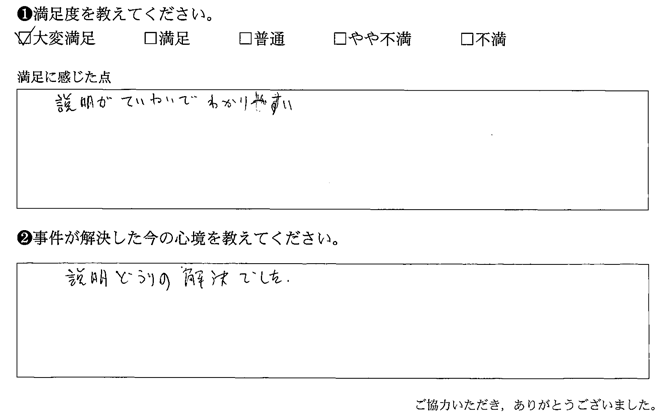 ❶満足度を教えてください。
☑大変満足 □満足 □普通 □やや不満 □不満
満足に感じた点
説明がていねいで わかりやすい
❷事件が解決した今の心境を教えてください。
説明どうりの 解決でした.
ご協力いただき，ありがとうございました。